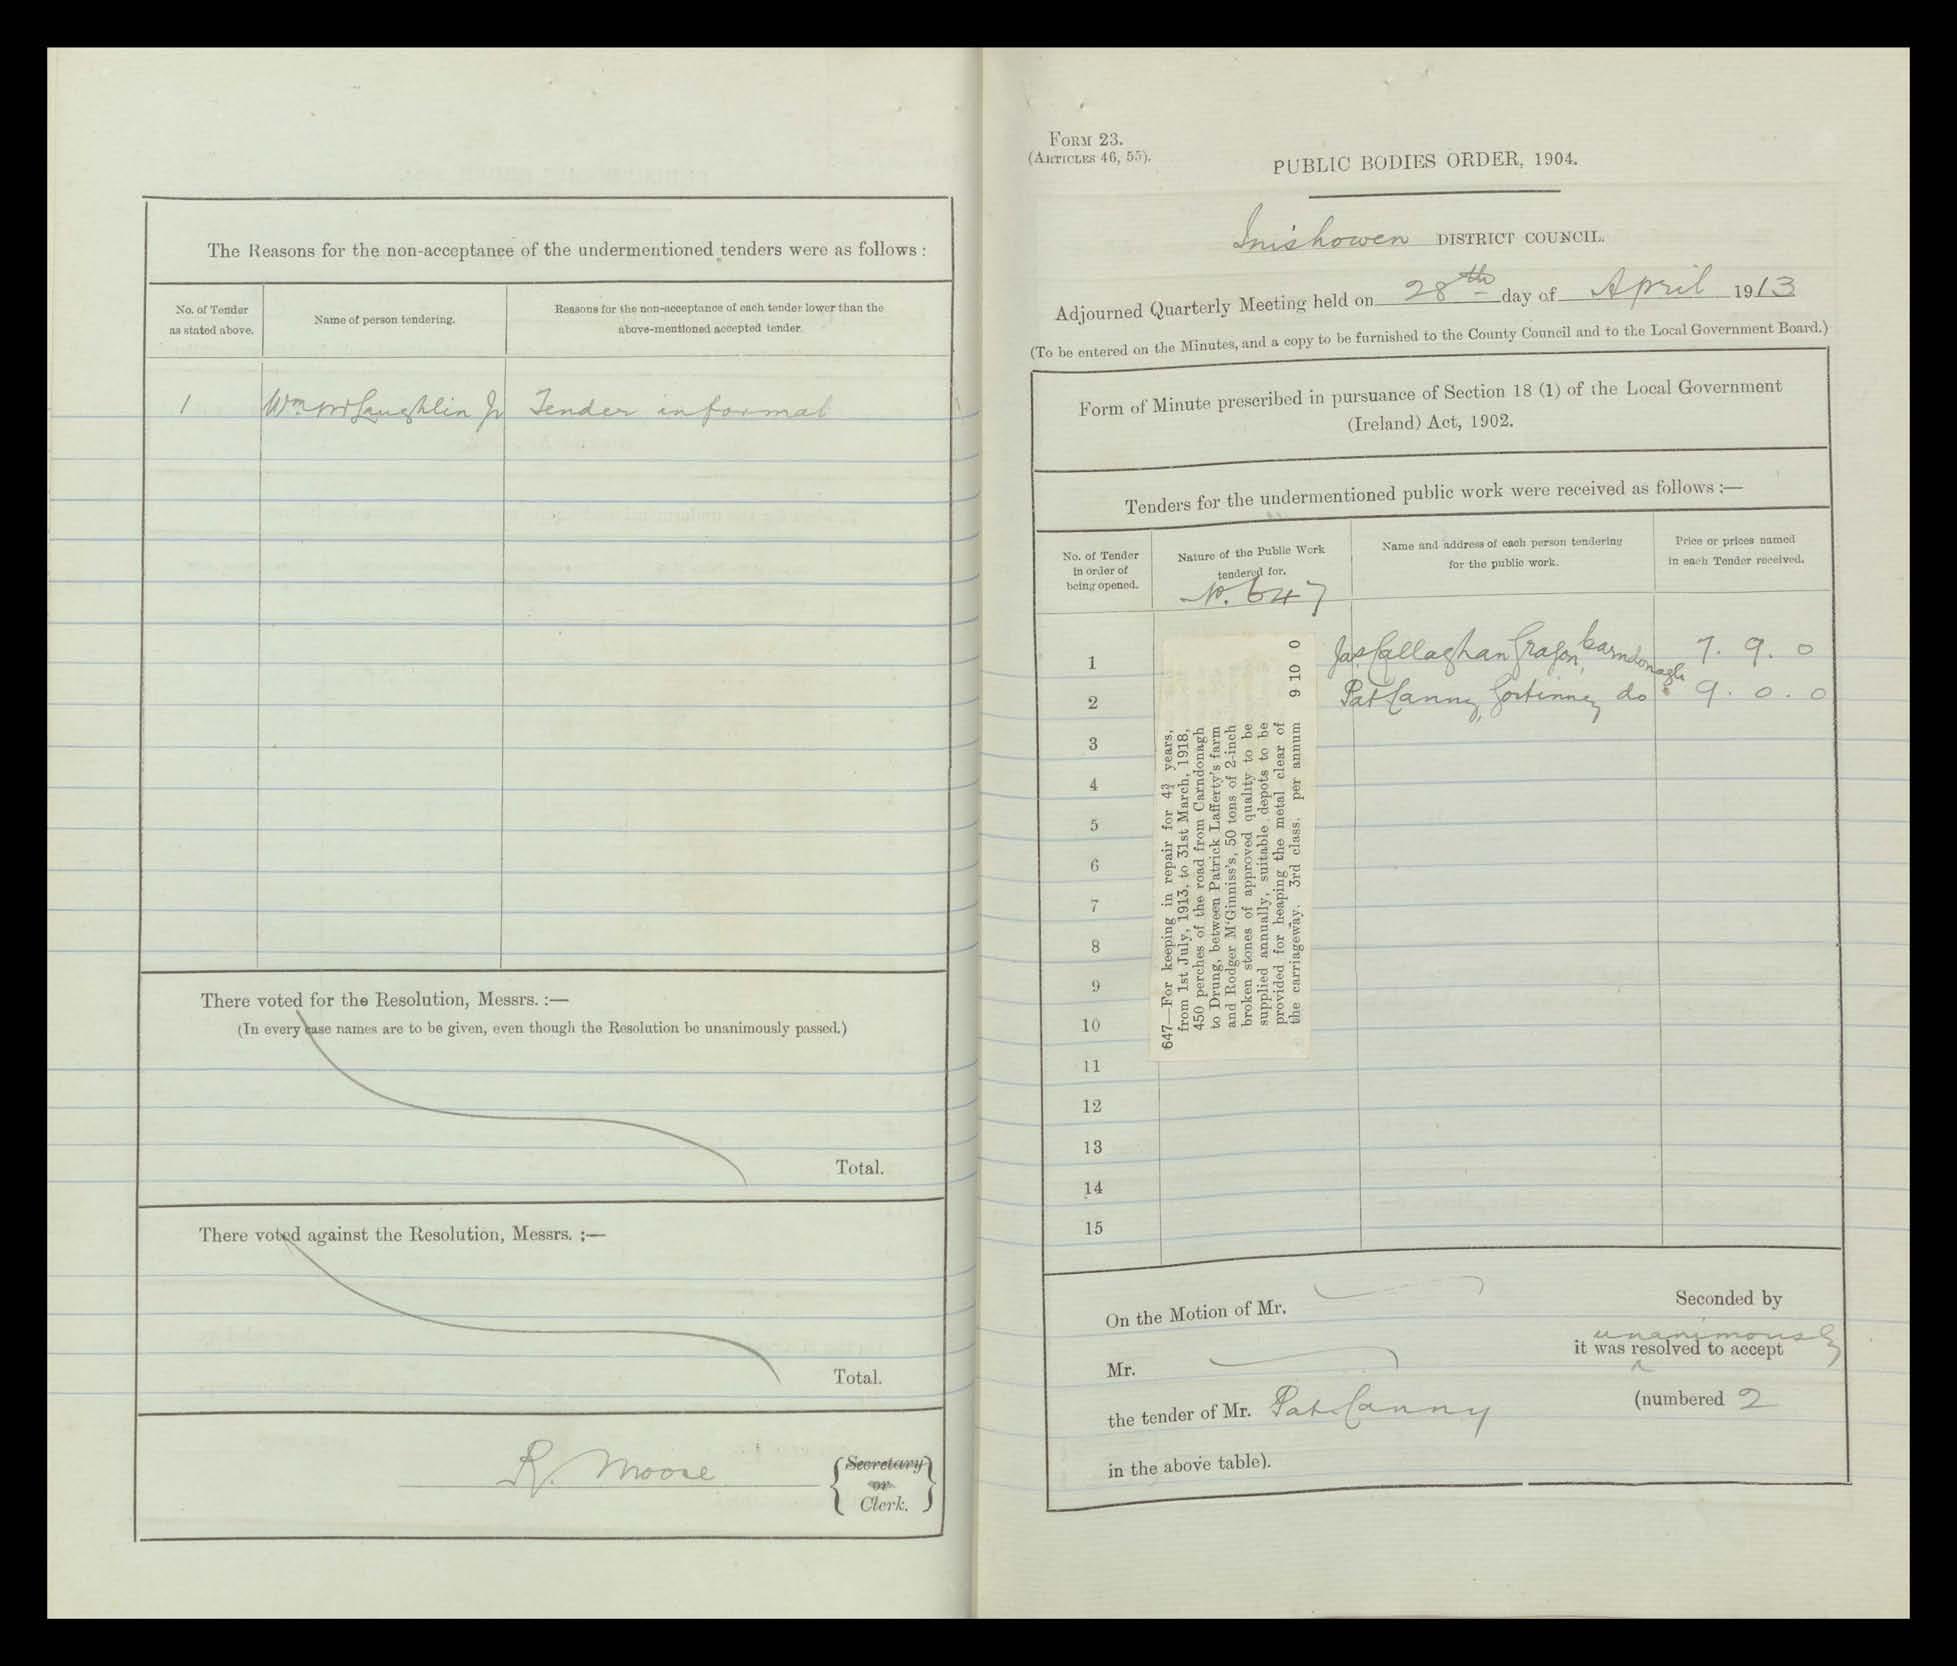 The Reasons for the non-acceptance of the undermentioned tenders were as follows :
No. of Tender
as stated above.
Name of person tendering.
Reasons for the non-acceptance of each tender lower than the
above-mentioned accepted tender.
1 Wm McLaughlin Jr Tender informal
There voted for the Resolution, Messrs. :—
(In every case names are to be given, even though the Resolution be unanimously passed.)
Total.
There voted against the Resolution, Messrs. :—
Total.
R. Moore
Secretary
or
Clerk.
FORM 23.
(ARTICLES 46, 55).
PUBLIC BODIES ORDER, 1904.
Inishowen DISTRICT COUNCIL.
Adjourned Quarterly Meeting held on 28th day of April 1913
(To be entered on the Minutes, and a copy to be furnished to the County Council and to the Local Government Board.)
Form of Minute prescribed in pursuance of Section 18 (1) of the Local Government
(Ireland) Act, 1902.
Tenders for the undermentioned public work were received as follows :—
No. of Tender
in order of
being opened.
Nature of the Public Work
tendered for.
No. 647
Name and address of each person tendering
for the public work.
Price or prices named
in each Tender received.
647—For keeping in repair for 4¾ years,
from 1st July, 1913, to 31st March, 1918,
450 perches of the road from Carndonagh
to Drung, between Patrick Lafferty's farm
and Rodger M'Ginniss's, 50 tons of 2-inch
broken stones of approved quality to be
supplied annually, suitable depots to be
provided for heaping the metal clear of
the carriageway. 3rd class. per annum 9 10 0
1 Jas Callaghan Carndonagh 7. 9. 0
2 Pat Canny, do 9. 0. 0
3
4
5
6
7
8
9
10
11
12
13
14
15
On the Motion of Mr.
Seconded by
Mr.
unanimously
it was resolved to accept
the tender of Mr. Pat Canny (numbered 2
in the above table).